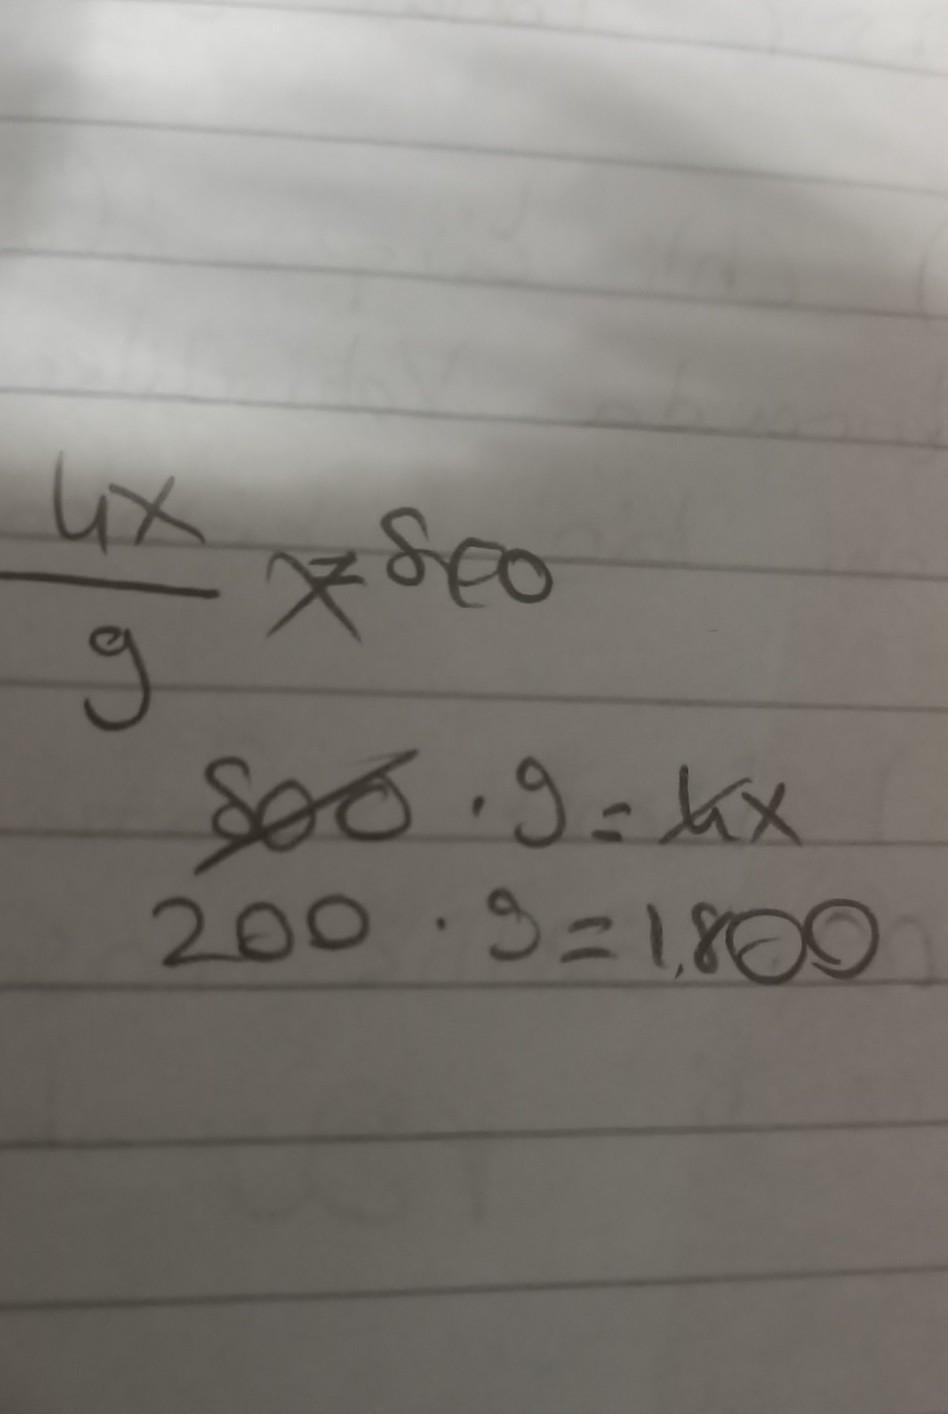 4x
9
= 800
800 · 9 = 4x
200 · 9 = 1,800